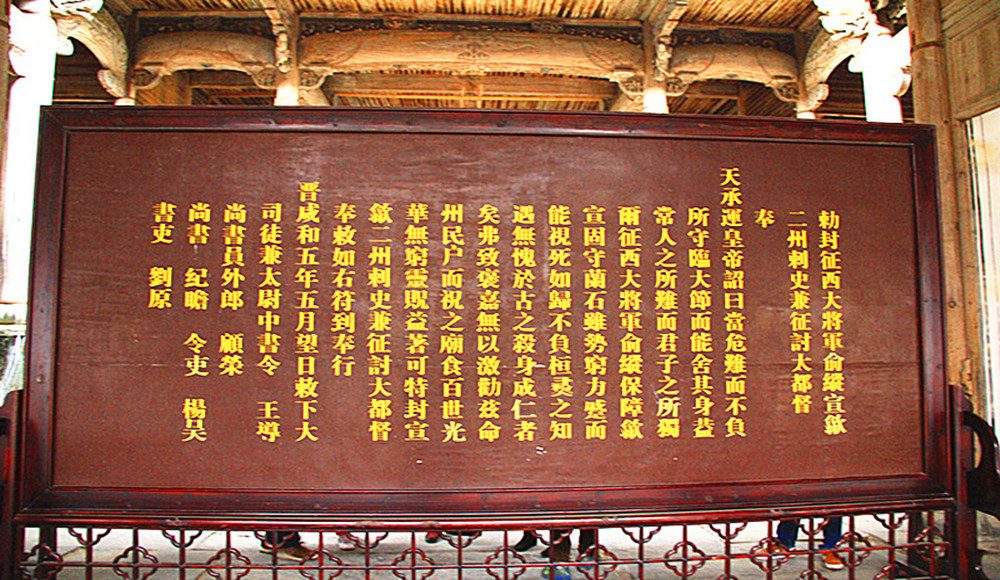 勅封征西大將軍俞縱宣歙
二州刺史兼征討大都督
奉
天承運皇帝詔曰當危難而不負
所守臨大節而能舍其身葢
常人之所難而君子之所獨
爾征西大將軍俞縱保障歙
宣固守蘭石雖勢窮力蹙而
能視死如歸不負桓彝之知
遇無愧於古之殺身成仁者
矣弗致褒嘉無以激勸兹命
州民户而祝之廟食百世光
華無窮靈貺益著可特封宣
歙二州刺史兼征討大都督
奉敕如右符到奉行
晋咸和五年五月望日敕下大
司徒兼太尉中書令 王導
尚書員外郎 顧榮
尚書 紀瞻 令吏 楊吴
書吏 劉原